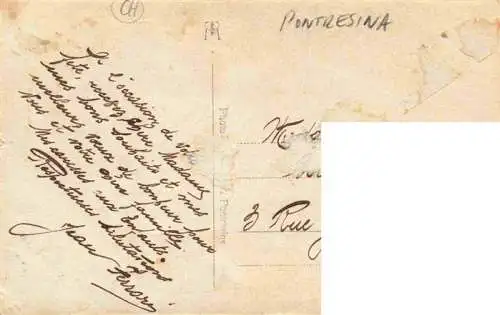 CH
PONTRESINA
A l'occasion de votre
fête, recevez chère Madame
mes bons souhaits et mes
meilleurs vœux de bonheur pour
vous et votre famille
Mes amitiés aux enfants
Respectueuses Salutations
Jean Ferrari
3 Rue